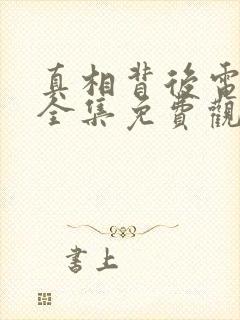 真相背後電
全集免費觀
書上